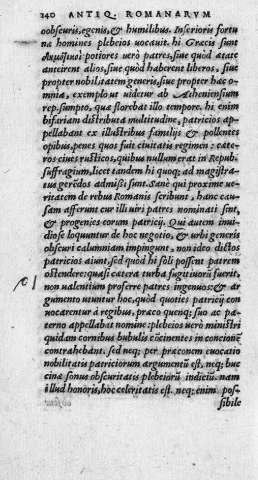 240 ANTIQ. ROMANARVM
obscuris, egenis, & humilibus. Inferioris fortu
næ homines plebeios uocauit. hi Græcis sunt
potiores uerò patres, siue quòd ætate
anteirent alios, siue quòd haberent liberos, siue
propter nobilitatem generis, siue propter hæc o-
mnia, exemplo ut uidetur ab Atheniensium
rep. sumpto, quæ florebat illo tempore. hi enim
bifariam distributa multitudine, patricios ap-
pellabant ex illustribus familijs & pollentes
opibus, penes quos fuit ciuitatis regimen: cæte-
ros ciues rusticos, quibus nullum erat in Repub.
suffragium, licet tandem hi quoq; ad magistra-
tus gerēdos admissi sunt. Sanè qui proxime ue-
ritatem de rebus Romanis scribunt, hanc cau-
sam afferunt cur illi uiri patres nominati sint,
& progenies eorum patricij. Qui autem inui-
diose loquuntur de hoc negotio, & urbi generis
obscuri calumniam impingunt, non ideo dictos
patricios aiunt, sed quòd hi soli possent patrem
ostendere: quasi cætera turba fugitiuorū fuerit,
non ualentium proferre patres ingenuos: & ar
gumento utuntur hoc, quòd quoties patricij con
uocarentur à regibus, præco quenq; suo ac pa-
terno appellabat nomine: plebeios uerò ministri
quidam cornibus bubulis cōcinentes in concionē
contrahebant. sed neq; per præconem euocatio
nobilitatis patriciorum argumentū est, neq; buc
cinæ sonus obscuritatis plebeiorū indiciū. nam
illud honoris, hoc celeritatis est. neq; enim pos-
sibile